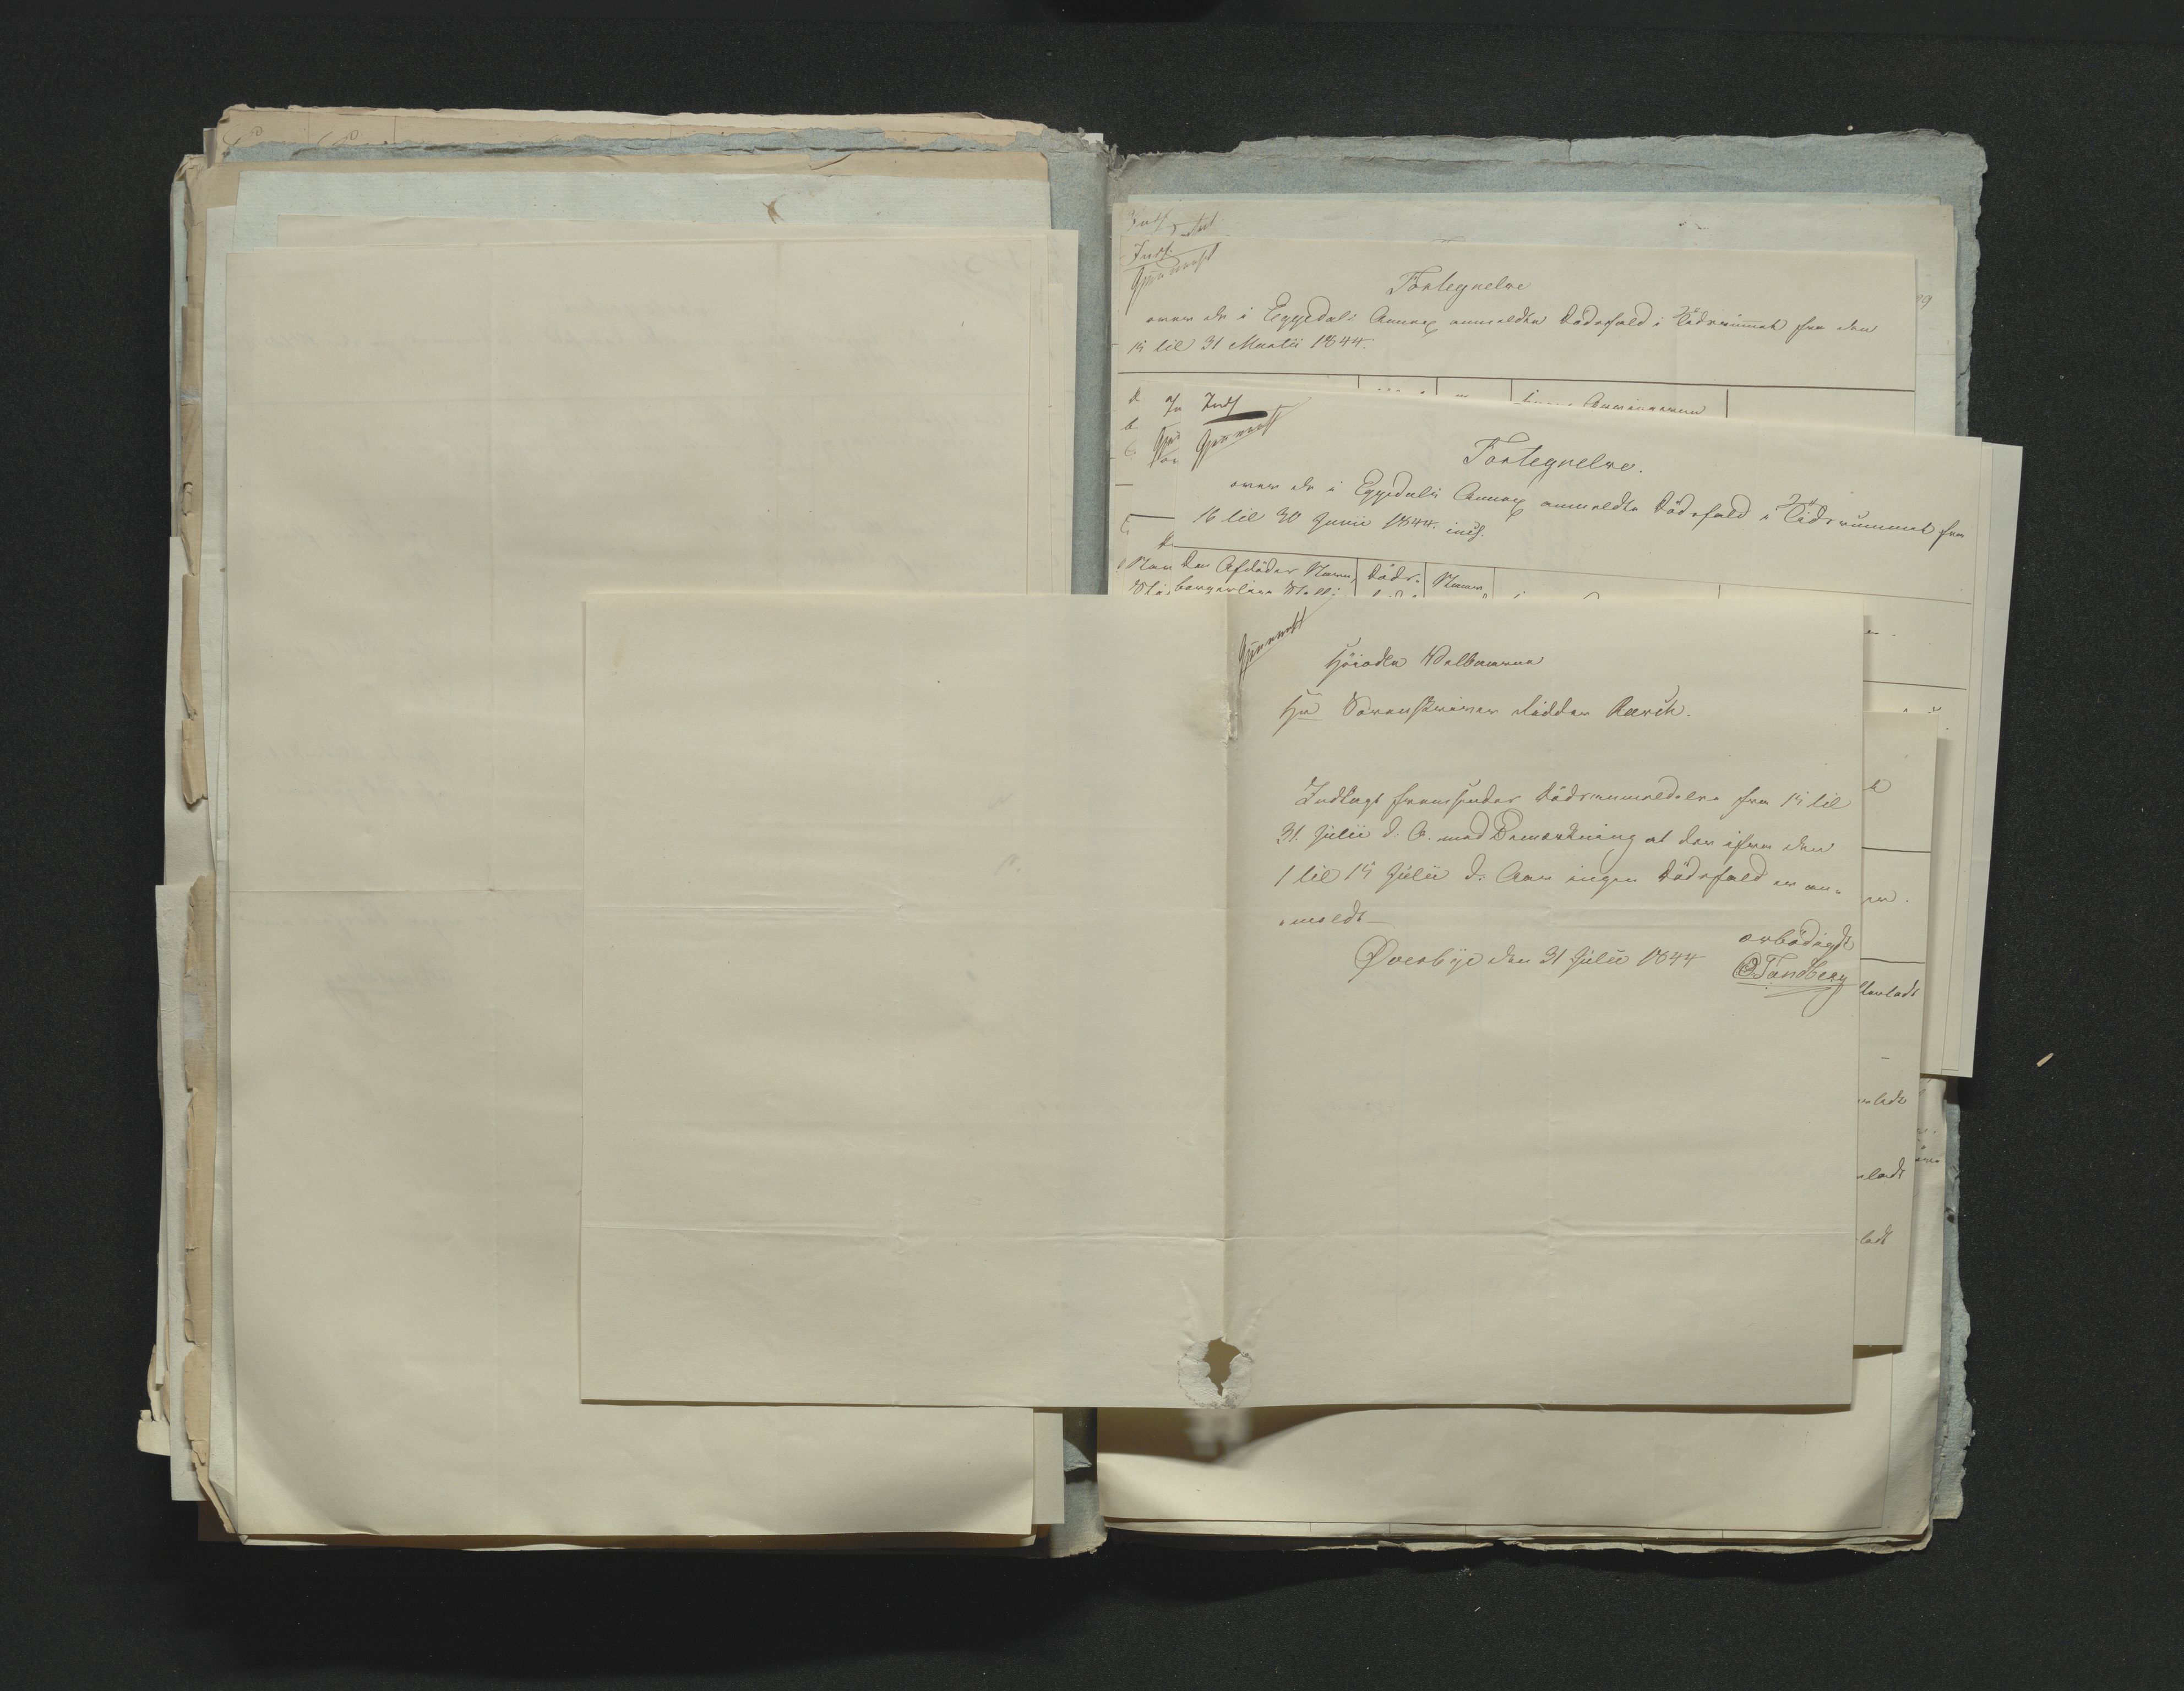 Indf
Indf.
Gjennemseet
Fortegnelse
over de i Eggedals Annex anmeldte Dødsfald i Tidsrummet fra den
15 til 31 Martii 1844.
Indf
Gjennemseet
Fortegnelse.
over de i Eggedals Annex anmeldte Dødsfald i Tidsrummet fra
16 til 30 Junii 1844. incl.
Den Afdødes Navn, Døds-
borgerlige Stilli
Gjennemseet
Høiædle Velbaarne
Hr Sorenskriver Ridder
Indlagt fremsendes Dødsanmeldelse fra 15 til
31 Julii d. A. med Bemærkning at der ifra den
1 til 15 Julii d: Aar ingen Dødsfald er an-
meldt
ærbødigst
Øverbye den 31 Julii 1844
Tandberg